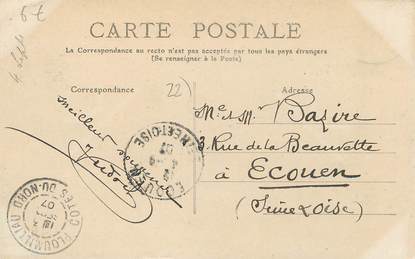 6 €
CARTE POSTALE
La Correspondance au recto n'est pas acceptée par tous les pays étrangers
(Se renseigner à la Poste)
Correspondance
22)
Adresse
Me et M. Bazire
3 Rue de la Beauvette
à Ecouen
(Seine & Oise)
meilleur souvenir
Isidore
ECOUEN
SEINE-ET-OISE
07
PLOUMILLIAU
COTES-DU-NORD
07